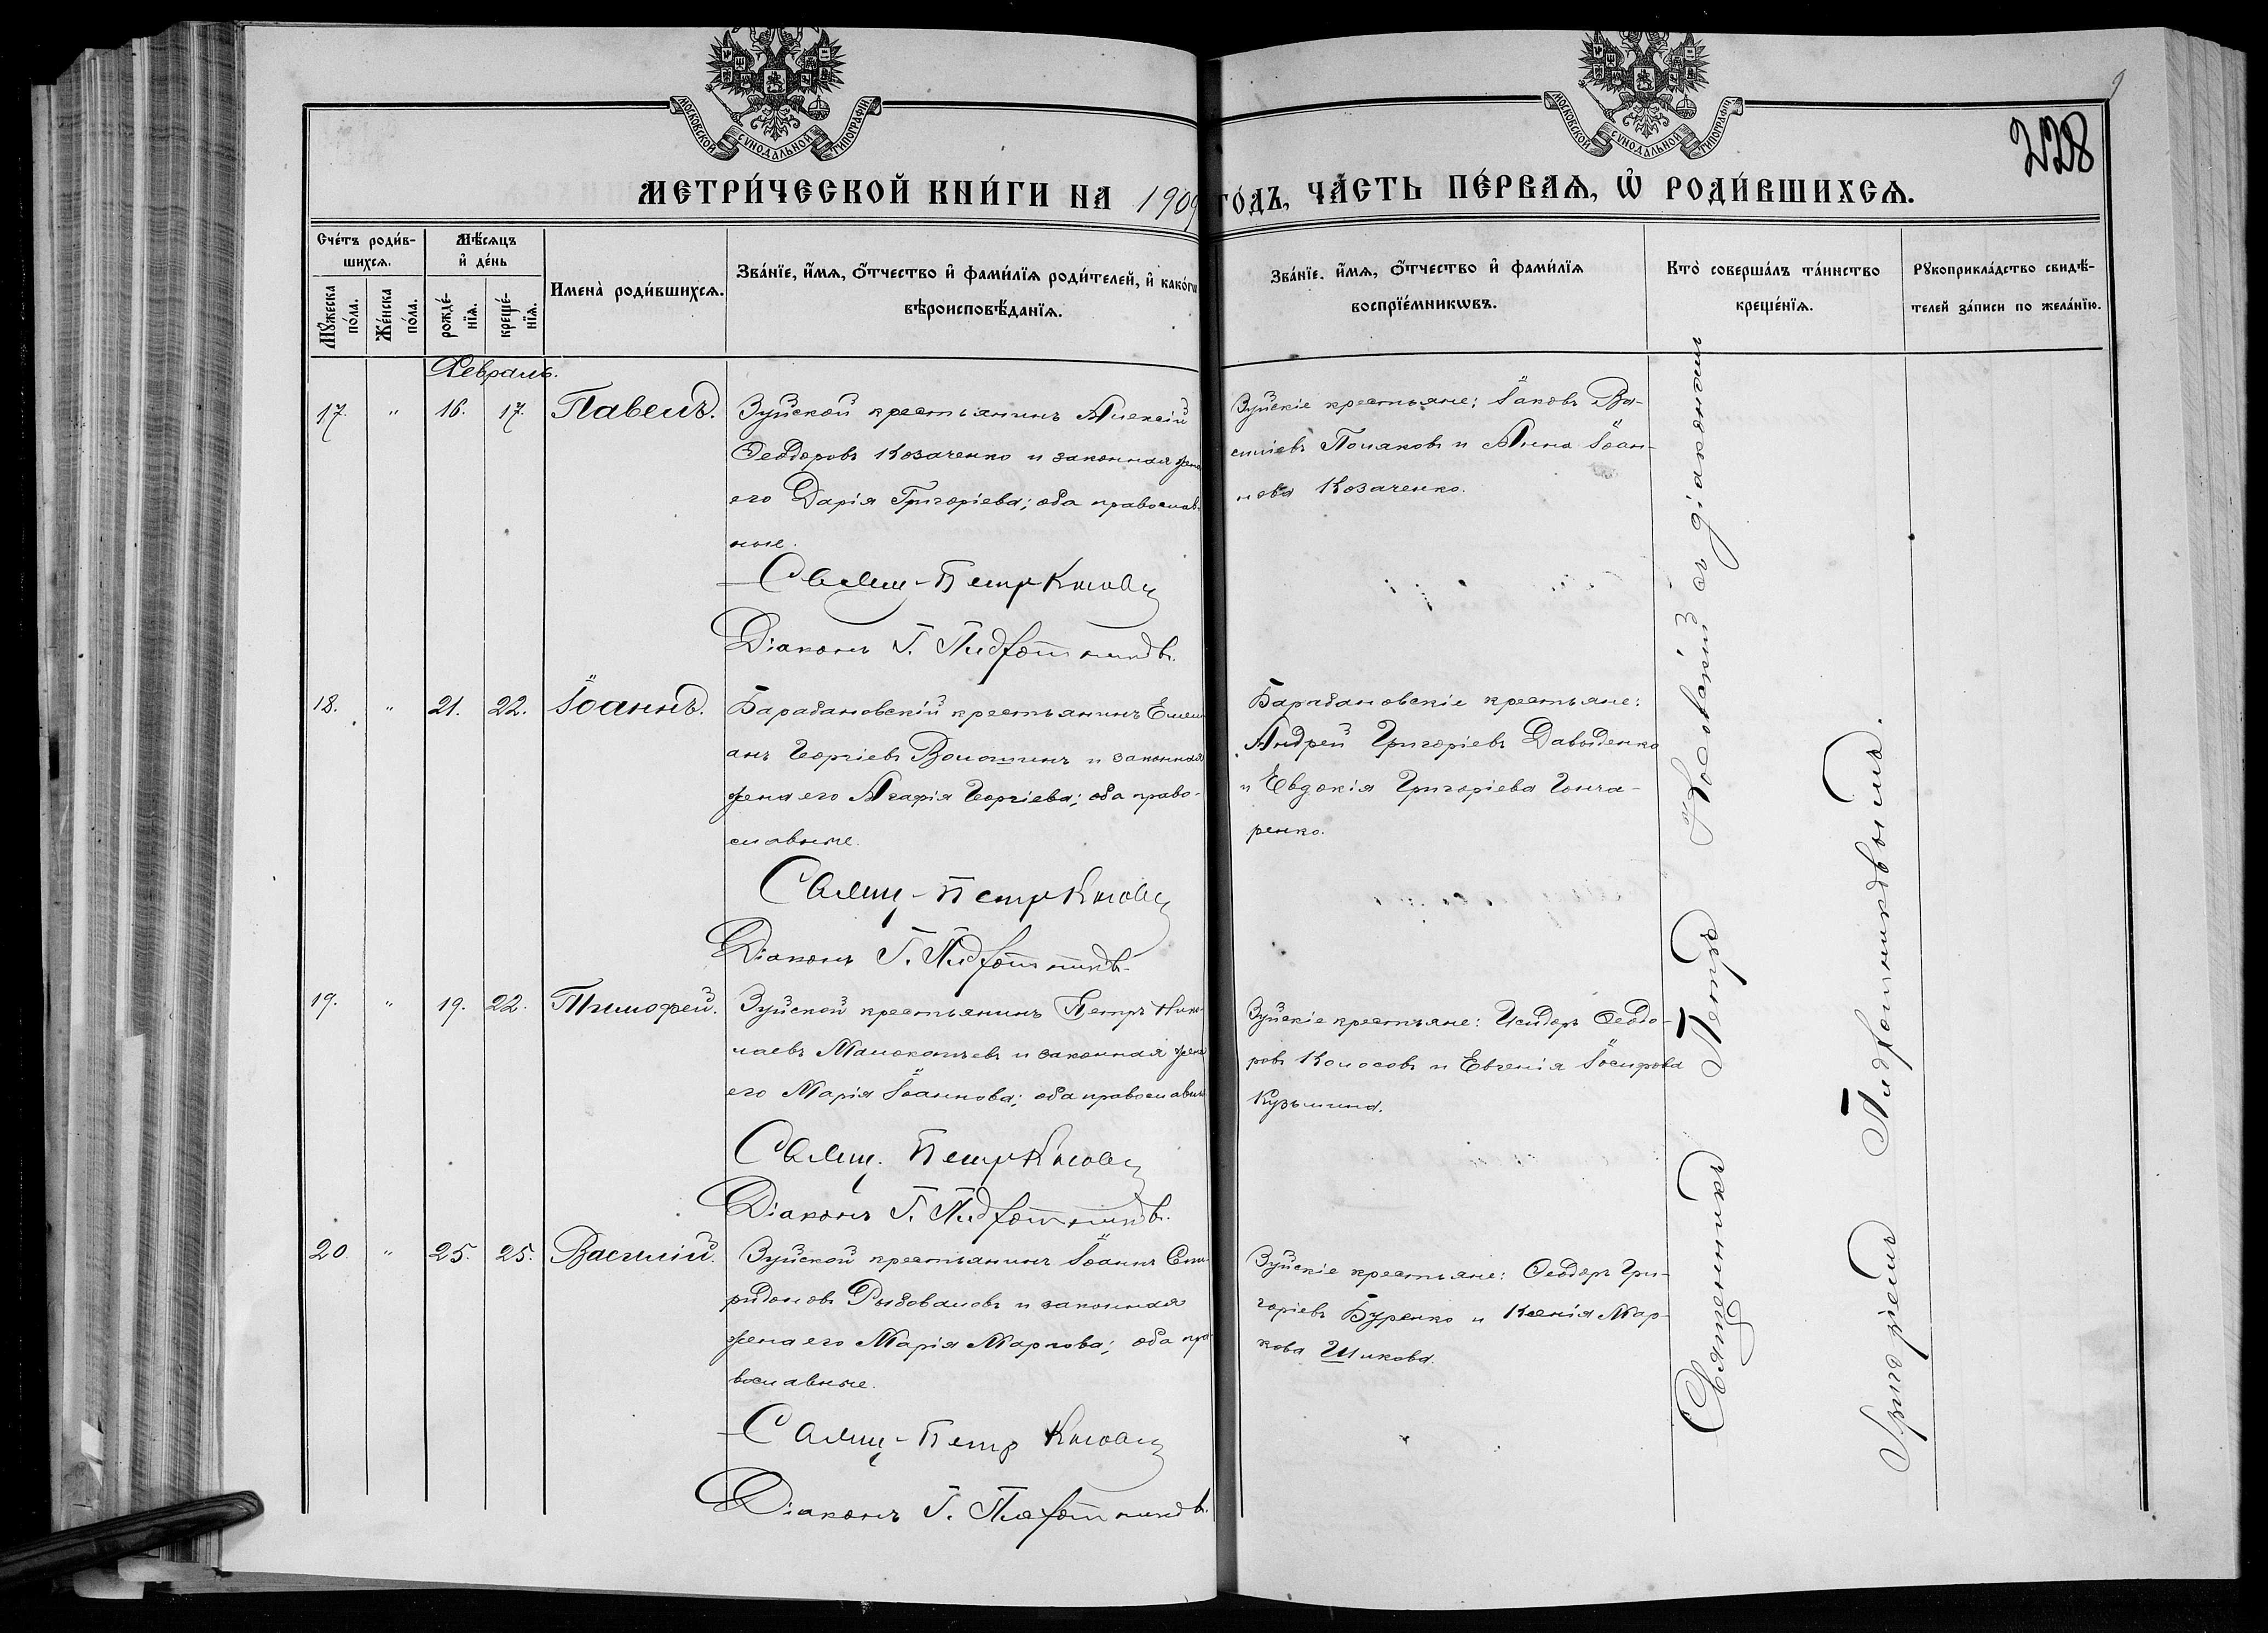 МОСКОВСКОЙ СУНОДАЛЬНОЙ ТИПОГРАФІИ
МОСКОВСКОЙ СУНОДАЛЬНОЙ ТИПОГРАФІИ
9
228
МЕТРИ́ЧЕСКОЙ КНИ́ГИ НА 1909 ГО́ДЪ, ЧА́СТЬ ПЕ́РВАѦ, Ѡ҆ РОДИ́ВШИХСѦ.
Сче́тъ роди́в-
шихсѧ.
Мꙋ́жеска
по́ла.
Же́нска
по́ла.
Мѣ́сѧцъ
и҆ де́нь
рожде́-
нїѧ.
креще́-
нїѧ.
Имена̀ роди́вшихсѧ.
Зва́нїе, и҆́мѧ, ѻ҆́тчество и҆ фами́лїѧ роди́телей, и҆ како́гѡ
вѣроисповѣ́данїѧ.
Зва́нїе, и҆́мѧ, ѻ҆́тчество и҆ фами́лїѧ
воспрїе́мникѡвъ.
Кто̀ соверша́лъ та́инство
креще́нїѧ.
Рꙋкоприкла́дство свидѣ́-
телей за́писи по жела́нїю.
Февраль.
17. " 16. 17. Павелъ.
Зуйской крестьянинъ Алексій
Ѳеодоровъ Козаченко и законная жена
его Дарія Григоріева; оба православ-
ные.
Свящ. Петръ
Діаконъ Г.
Зуйскіе крестьяне: Іаковъ Ва-
силіевъ Поляковъ и Анна Іоан-
нова Козаченко.
18. " 21. 22. Іоаннъ.
Барабановскій крестьянинъ Емели
анъ Георгіевъ Волошинъ и законная
жена его Агафія Георгіева; оба право-
славные.
Свящ. Петръ
Діаконъ Г.
Барабановскіе крестьяне:
Андрей Григоріевъ Давыденко
и Евдокія Григоріева Гонча-
ренко.
19. " 19. 22. Тимофей.
Зуйской крестьянинъ Петръ Нико-
лаевъ и законная жена
его Марія Іоаннова; оба православные
Свящ. Петръ
Діаконъ Г.
Зуйскіе крестьяне: Исидоръ Ѳеодо-
ровъ Колосовъ и Евгенія Іосифова
Кузьмина.
20. " 25. 25. Василій.
Зуйской крестьянинъ Іоаннъ Спи-
ридоновъ и законная
жена его Марія Маркова; оба пра-
вославные.
Свящ. Петръ
Діаконъ Г.
Зуйскіе крестьяне: Ѳеодоръ Гри-
горіевъ Буренко и Ксенія Мар-
кова Шикова.
Священникъ Петръ съ діакономъ
Григоріемъ